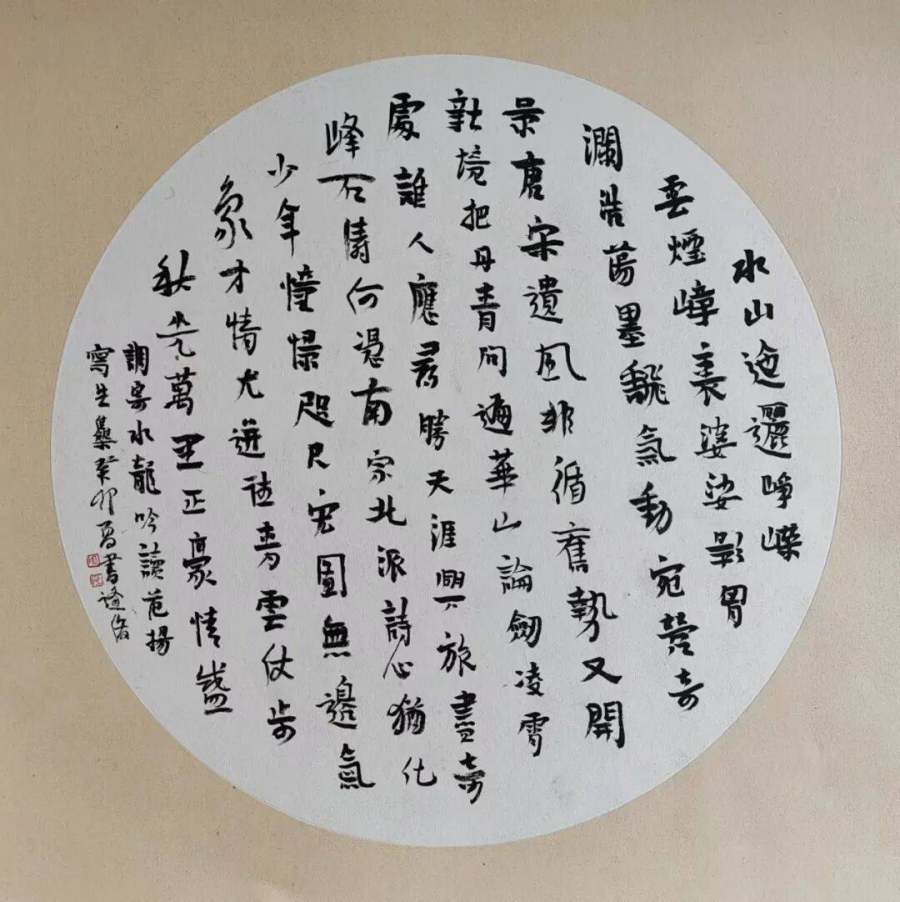 水山迤邐崢嶸
雲煙嶂裏婆娑影胃
瀾浩蕩墨飜氣動宛營奇
景唐宋遺風非循舊勢又開
新境把丹青問遍華山論劍凌霄
處誰人應尋勝天涯興旅盡奇
峰石濤何憑南宗北派詩心猶化
少年憧憬咫尺宏圖無邊氣
象才情尤逬詩青雲仗步
秋光萬里正豪情盛
調寄水龍吟讀范揚
寫生集癸卯夏書